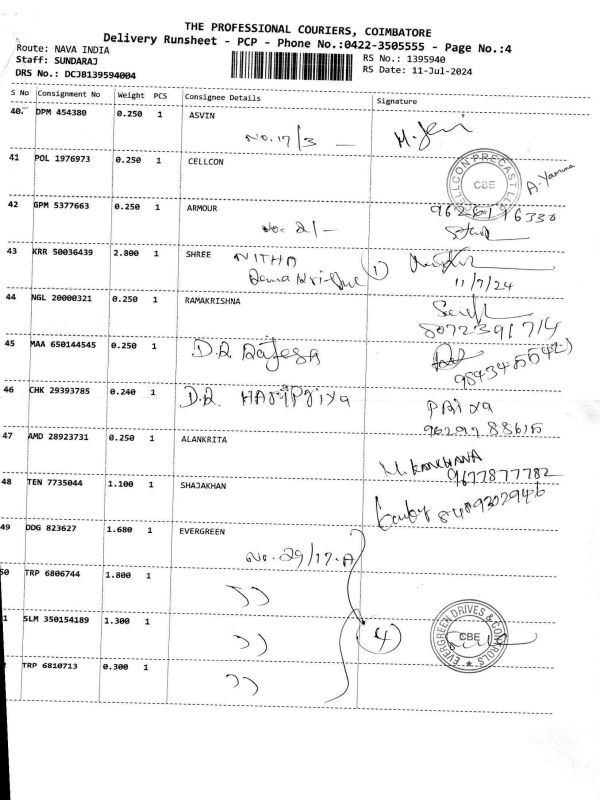 THE PROFESSIONAL COURIERS, COIMBATORE
Delivery Runsheet - PCP - Phone No.:0422-3505555 - Page No.:4
Route: NAVA INDIA
RS No.: 1395940
Staff: SUNDARAJ
RS Date: 11-Jul-2024
DRS No.: DCJB139594004
S No Consignment No Weight PCS Consignee Details Signature
40. DPM 454380 0.250 1 ASVIN
No. 17/3
41 POL 1976973 0.250 1 CELLCON
CELLCON PRECAST CBE
A. Yamuna
42 GPM 5377663 0.250 1 ARMOUR
No. 2/-
43 KRR 50036439 2.800 1 SHREE NITHA
1
11/7/24
44 NGL 20000321 0.250 1 RAMAKRISHNA
8072391714
45 MAA 650144545 0.250 1 D.R. Rajesh
46 CHK 29393785 0.240 1 D.R. HARIPRIYA
PRIYA
47 AMD 28923731 0.250 1 ALANKRITA
M. KANCHANA
9677877782
48 TEN 7735044 1.100 1 SHAJAKHAN
49 DDG 823627 1.680 1 EVERGREEN
No. 29/17-A
50 TRP 6806744 1.800 1 ))
1 SLM 350154189 1.300 1 ))
4
EVERGREEN DRIVES & CONTROLS CBE
TRP 6810713 0.300 1 ))